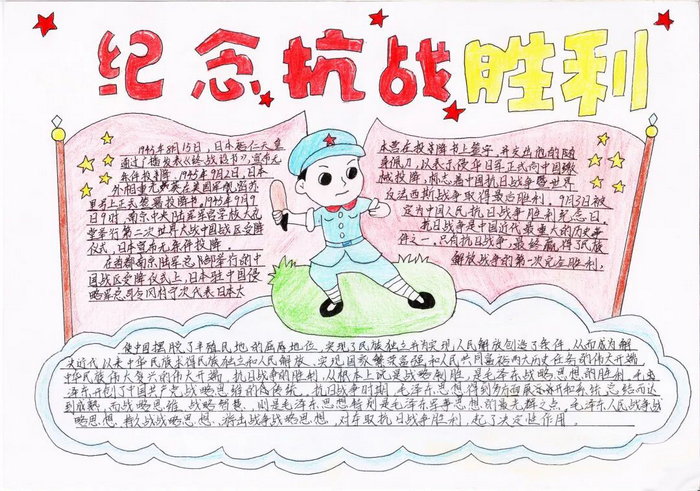 纪念抗战胜利
1945年8月15日，日本裕仁天皇
通过广播发表《终战诏书》，宣布无
条件投降，1945年9月2日，日本
外相重光葵在美国军舰密苏
里号上正式签署投降书，1945年9月
9日9时，南京中央陆军军官学校大礼
堂举行第二次世界大战中国战区受降
仪式，日本宣布无条件投降。
在首都南京陆军总部举行的中
国战区受降仪式上，日本驻中国侵
略军总司令冈村宁次代表日本大
本营在投降书上签字，并交出他的随
身佩刀，以表示侵华日军正式向中国缴
械投降，标志着中国抗日战争暨世界
反法西斯战争取得最后胜利，9月3日被
定为中国人民抗日战争胜利纪念日，
抗日战争是中国近代最重大的历史事
件之一，只有抗日战争，最终赢得了民族
解放战争的第一次完全胜利，
使中国摆脱了半殖民地的屈辱地位，实现了民族独立并为实现人民解放创造了条件，从而成为解
决近代以来中华民族求得民族独立和人民解放、实现国家繁荣富强和人民共同富裕两大历史任务的伟大开端，
中华民族伟大复兴的伟大开端，抗日战争的胜利，从根本上说是战略制胜，是毛泽东战略思想的胜利，毛
泽东开创了中国共产党战略思维的优传统，抗日战争时期，毛泽东思想得到多方面展示并和系统总结而达
到成熟，而战略思维、战略智慧，则是毛泽东思想特别是毛泽东军事思想的最光辉之点，毛泽东人民战争战
略思想、持久战战略思想、游击战争战略思想，对夺取抗日战争胜利，起了决定性作用。